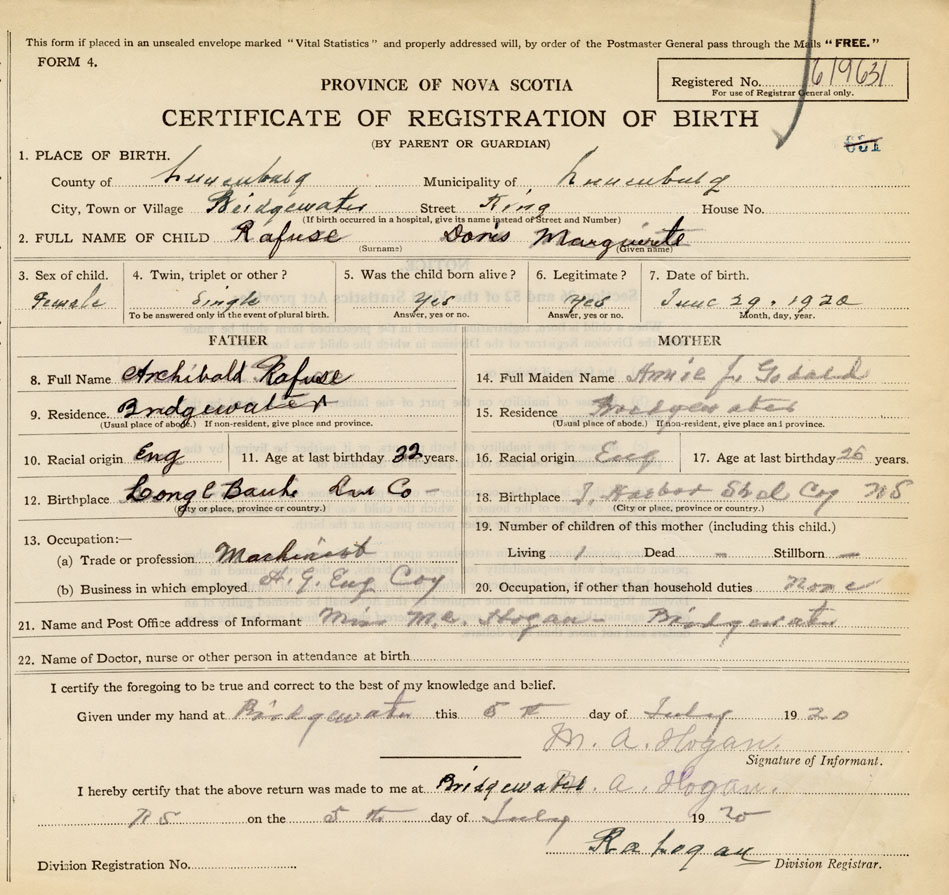 This form if placed in an unsealed envelope marked "Vital Statistics" and properly addressed will, by order of the Postmaster General pass through the Mails "FREE."
FORM 4.
Registered No. 619631
For use of Registrar General only.
PROVINCE OF NOVA SCOTIA
CERTIFICATE OF REGISTRATION OF BIRTH
(BY PARENT OR GUARDIAN)
1. PLACE OF BIRTH.
County of Lunenburg Municipality of Lunenburg
City, Town or Village Bridgewater Street King House No.
(If birth occurred in a hospital, give its name instead of Street and Number)
2. FULL NAME OF CHILD Rafuse Doris Marguerite
(Surname) (Given name)
3. Sex of child. 4. Twin, triplet or other? 5. Was the child born alive? 6. Legitimate? 7. Date of birth.
Female Single Yes Yes June 29. 1920
To be answered only in the event of plural birth. Answer, yes or no. Answer, yes or no. Month, day, year.
FATHER MOTHER
8. Full Name Archibald Rafuse
14. Full Maiden Name Annie J.
9. Residence Bridgewater
15. Residence Bridgewater
(Usual place of abode.) If non-resident, give place and province.
(Usual place of abode.) If non-resident, give place and province.
10. Racial origin Eng 11. Age at last birthday 32 years.
16. Racial origin Eng 17. Age at last birthday 26 years.
12. Birthplace Lun Co -
(City or place, province or country.)
18. Birthplace Harbor Shel Coy NS
(City or place, province or country.)
13. Occupation:—
(a) Trade or profession Machinist
(b) Business in which employed Eng Coy
19. Number of children of this mother (including this child.)
Living 1 Dead – Stillborn –
20. Occupation, if other than household duties None
21. Name and Post Office address of Informant Miss M.A. Hogan - Bridgewater
22. Name of Doctor, nurse or other person in attendance at birth
I certify the foregoing to be true and correct to the best of my knowledge and belief.
Given under my hand at Bridgewater this 5th day of July 1920
M. A. Hogan.
Signature of Informant.
I hereby certify that the above return was made to me at Bridgewater M. A. Hogan.
NS on the 5th day of July 1920
Division Registration No. Division Registrar.